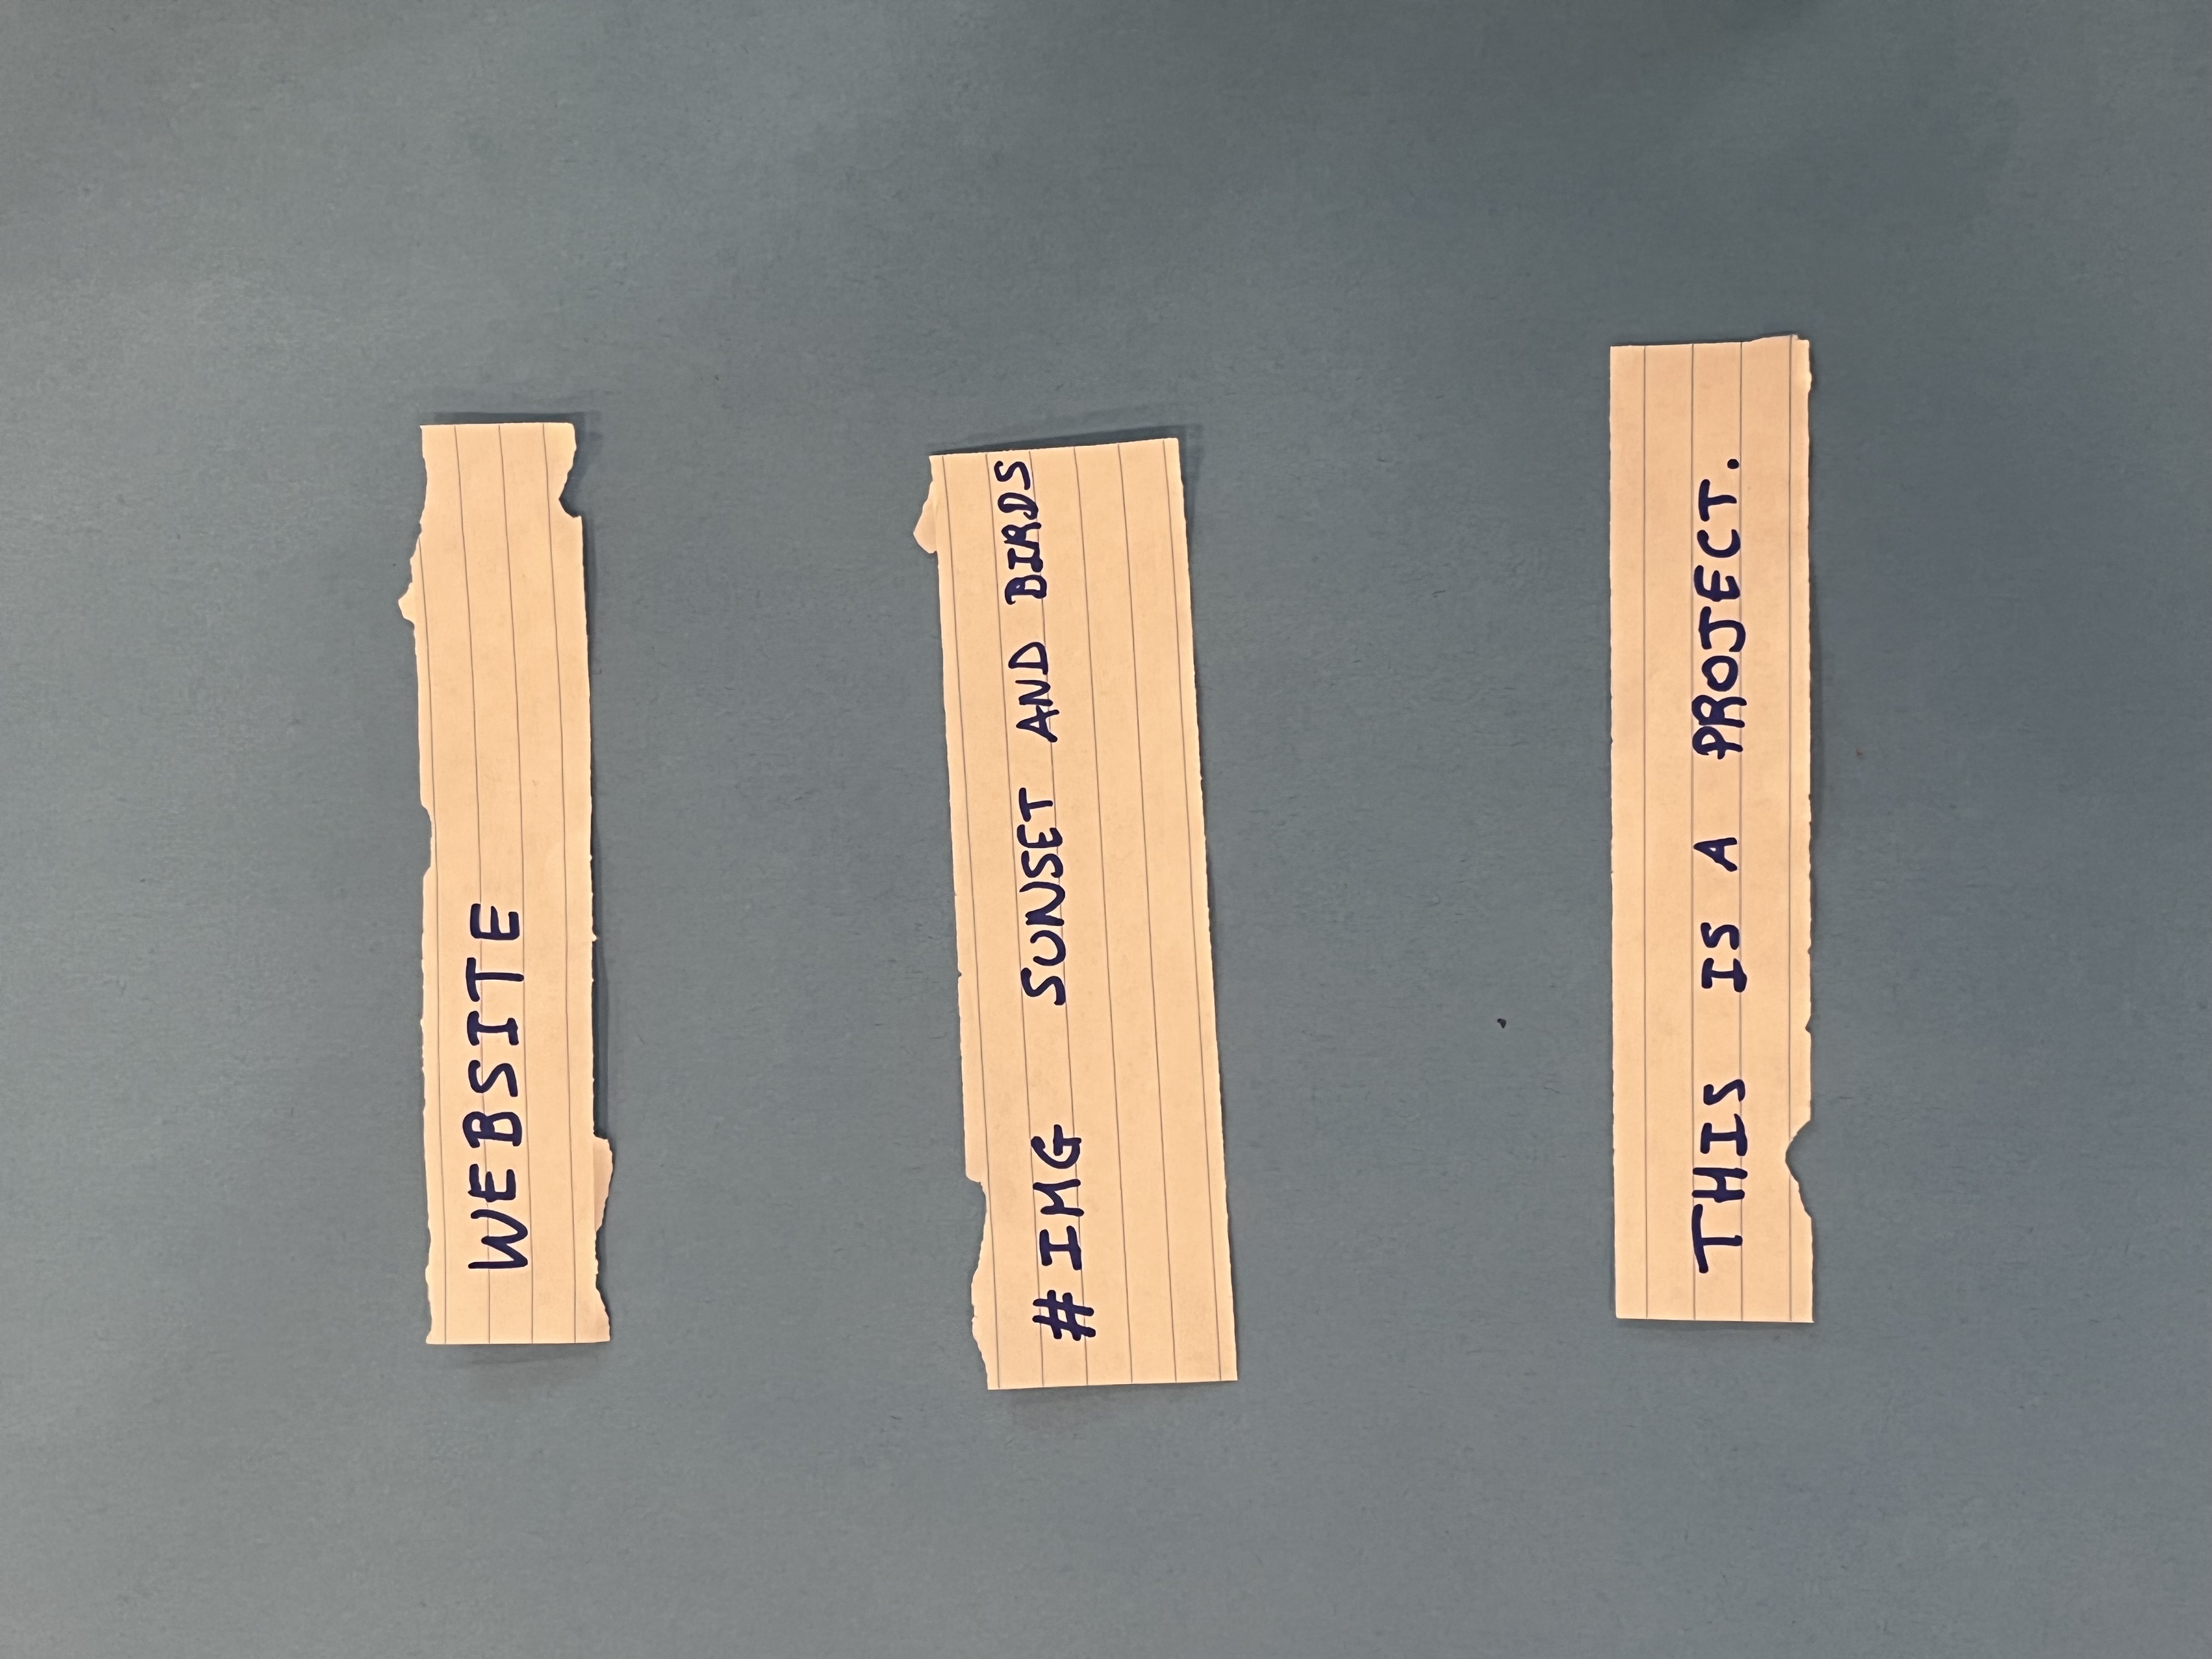 WEBSITE
#IMG SUNSET AND BIRDS
THIS IS A PROJECT.